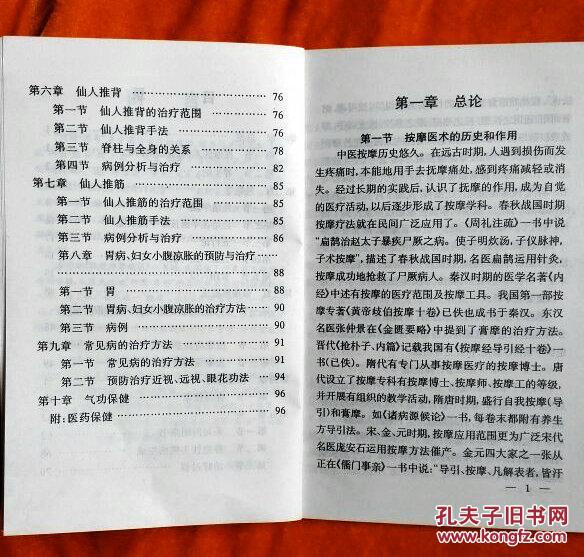 第六章　仙人推背 …………………… 76
第一节　仙人推背的治疗范围 ………… 76
第二节　仙人推背手法 ………………… 76
第三节　脊柱与全身的关系 …………… 78
第四节　病例分析与治疗 ……………… 82
第七章　仙人推筋 …………………… 85
第一节　仙人推筋的治疗范围 ………… 85
第二节　仙人推筋手法 ………………… 85
第三节　病例分析与治疗 ……………… 86
第八章　胃病、妇女小腹凉胀的预防与治疗 ……
…………………… 88
第一节　胃 …………………… 88
第二节　胃病、妇女小腹凉胀的治疗方法 …… 90
第三节　病例 …………………… 90
第九章　常见病的治疗方法 …………… 91
第一节　常见病的治疗方法 …………… 91
第二节　预防治疗近视、远视、眼花功法 …… 94
第十章　气功保健 …………………… 96
附:医药保健 …………………… 96
第一章　总论
第一节　按摩医术的历史和作用
中医按摩历史悠久。在远古时期,人遇到损伤而发
生疼痛时,本能地用手去抚摩痛处,感到疼痛减轻或消
失。经过长期的实践后,认识了抚摩的作用,成为自觉
的医疗活动,以后逐步形成了按摩学科。春秋战国时期
按摩疗法就在民间广泛应用了。《周礼注疏》一书中说
“扁鹊治赵太子暴疾尸厥之病。使子明炊汤,子仪脉神,
子术按摩”,描述了春秋战国时期,名医扁鹊运用针灸、
按摩成功地抢救了尸厥病人。秦汉时期的医学名著《内
经》中述有按摩的医疗范围及按摩工具。我国第一部按
摩专著《黄帝歧伯按摩十卷》已佚也成书于秦汉。东汉
名医张仲景在《金匮要略》中提到了膏摩的治疗方法。
晋代《抱朴子、内篇》记载我国有《按摩经导引经十卷》一
书(已佚)。隋代有专门从事按摩医疗的按摩博士。唐
代设立了按摩专科有按摩博士、按摩师、按摩工的等级,
并开展有组织的教学活动,隋唐时期,盛行自我按摩(导
引)和膏摩。如《诸病源候论》一书,每卷末都附有养生
方导引法。宋、金、元时期,按摩应用范围更为广泛宋代
名医庞安石运用按摩方法催产。金元四大家之一张从
正在《儒门事亲》一书中说:“导引、按摩、凡解表者,皆汗
— 1 —
孔夫子旧书网
www.kongfz.com